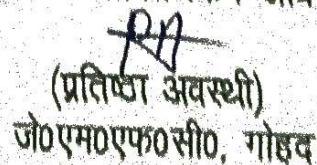 (प्रतिष्ठा अवस्थी)
जे०एम०एफ०सी०, गोहद